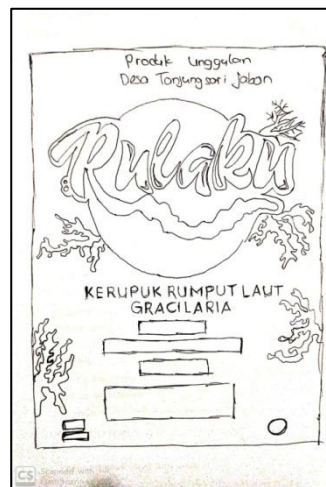 Produk Unggulan
Desa Tanjungsari Jabon
Rulaku
KERUPUK RUMPUT LAUT
GRACILARIA
CS Scanned with
CamScanner